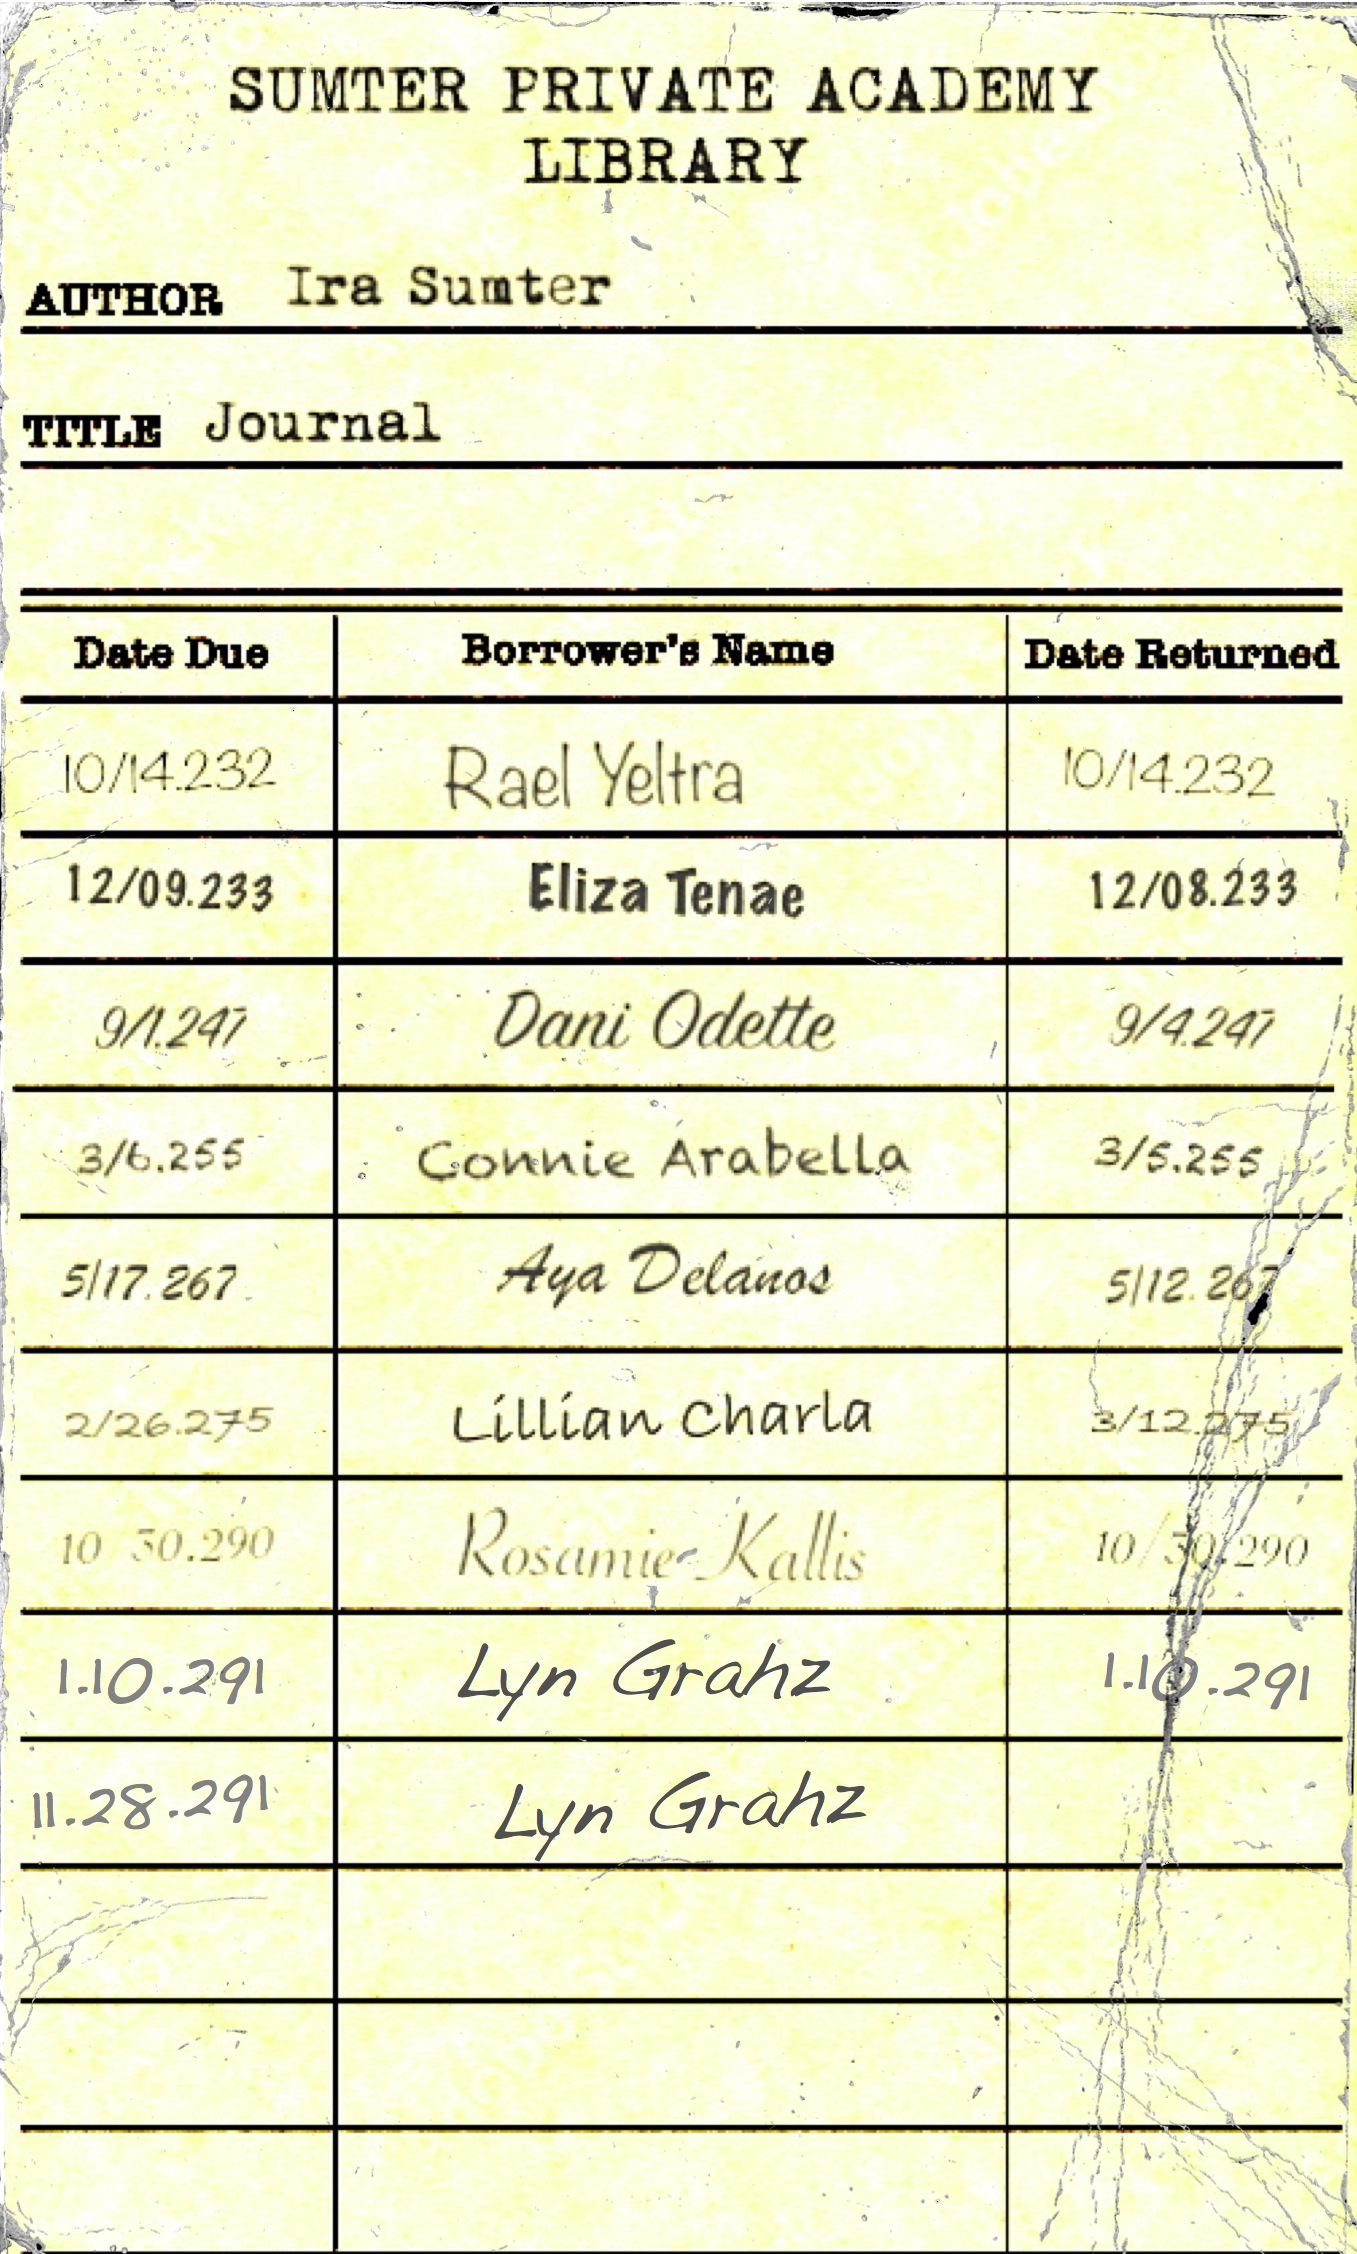 SUMTER PRIVATE ACADEMY
LIBRARY
AUTHOR Ira Sumter
TITLE Journal
Date Due Borrower's Name Date Returned
10/14.232 Rael Yeltra 10/14.232
12/09.233 Eliza Tenae 12/08.233
9/1.247 Dani Odette 9/4.247
3/6.255 Connie Arabella 3/5.255
5/17.267 Aya Delanos 5/12.267
2/26.275 Lillian Charla 3/12.275
10 30.290 Rosamie Kallis 10/30.290
1.10.291 Lyn Grahz 1.10.291
11.28.291 Lyn Grahz